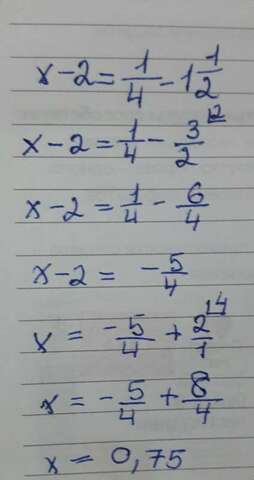 x-2=1/4-1 1/2
x-2=1/4-3/2 |2
x-2=1/4-6/4
x-2=-5/4
x=-5/4+2/1 |4
x=-5/4+8/4
x=0,75